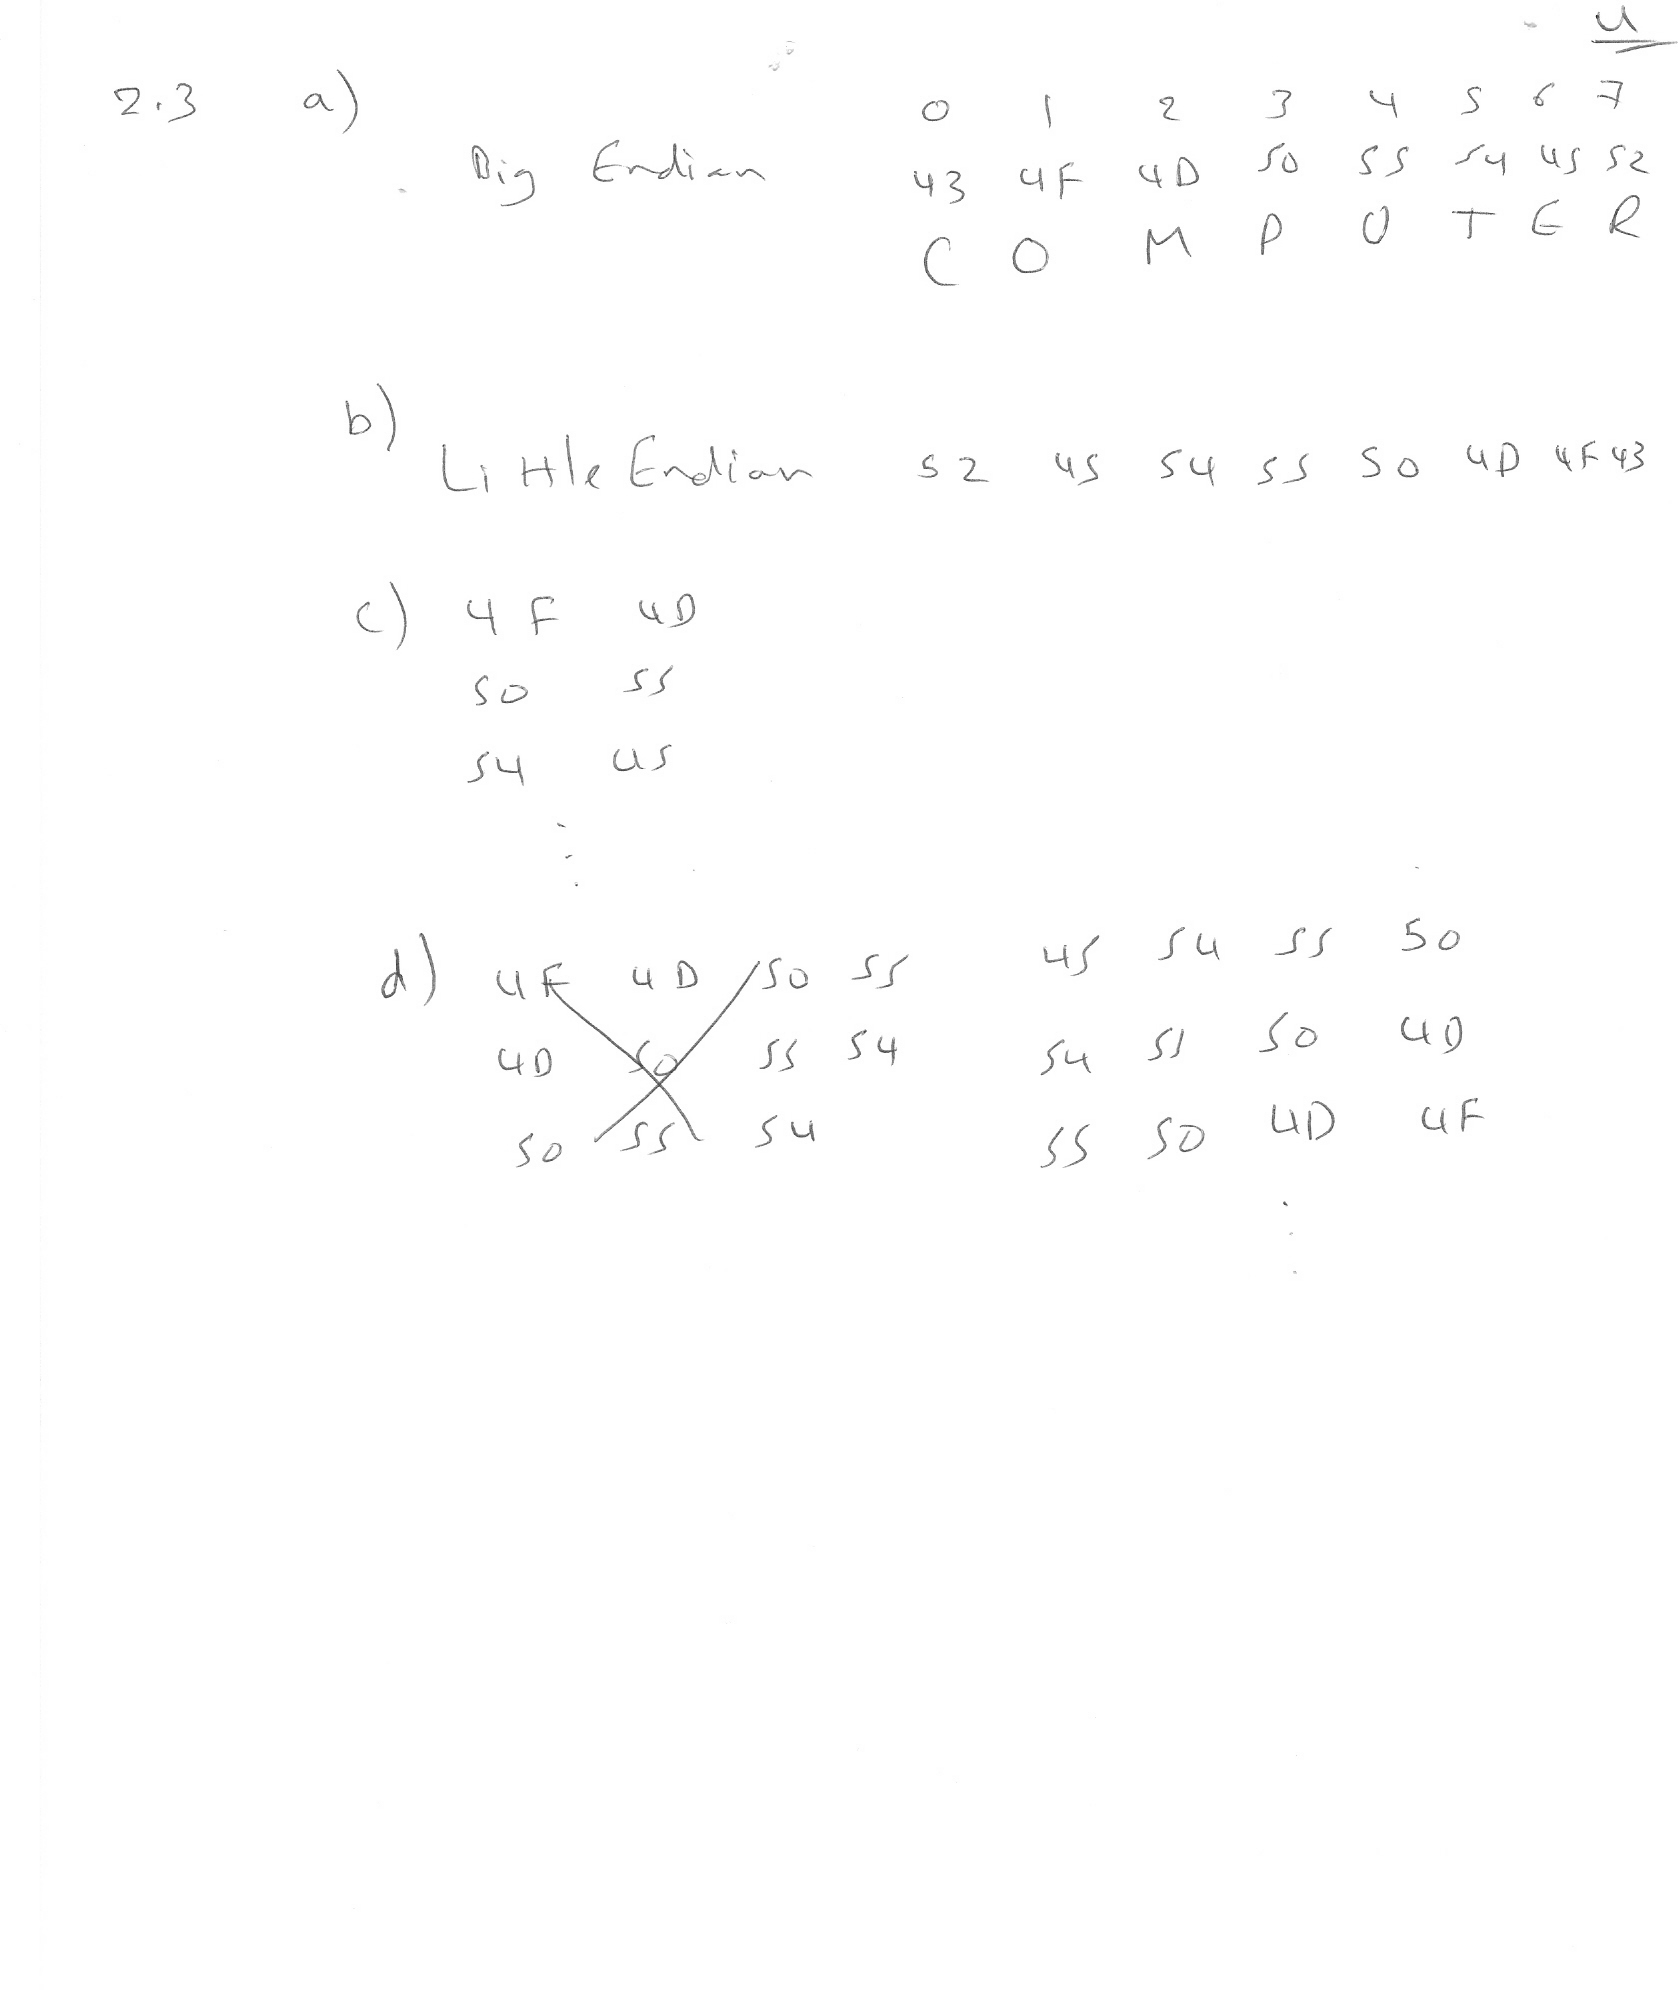 4
2.3 a) 0 1 2 3 4 5 6 7
Big Endian 43 4F 4D 50 55 54 45 52
C O M P U T E R
b)
Little Endian 52 45 54 55 50 4D 4F 43
c) 4F 4D
50 55
54 45
d) 4F 4D 50 55 45 54 55 50
4D 50 55 54 54 55 50 4D
50 55 54 55 50 4D 4F